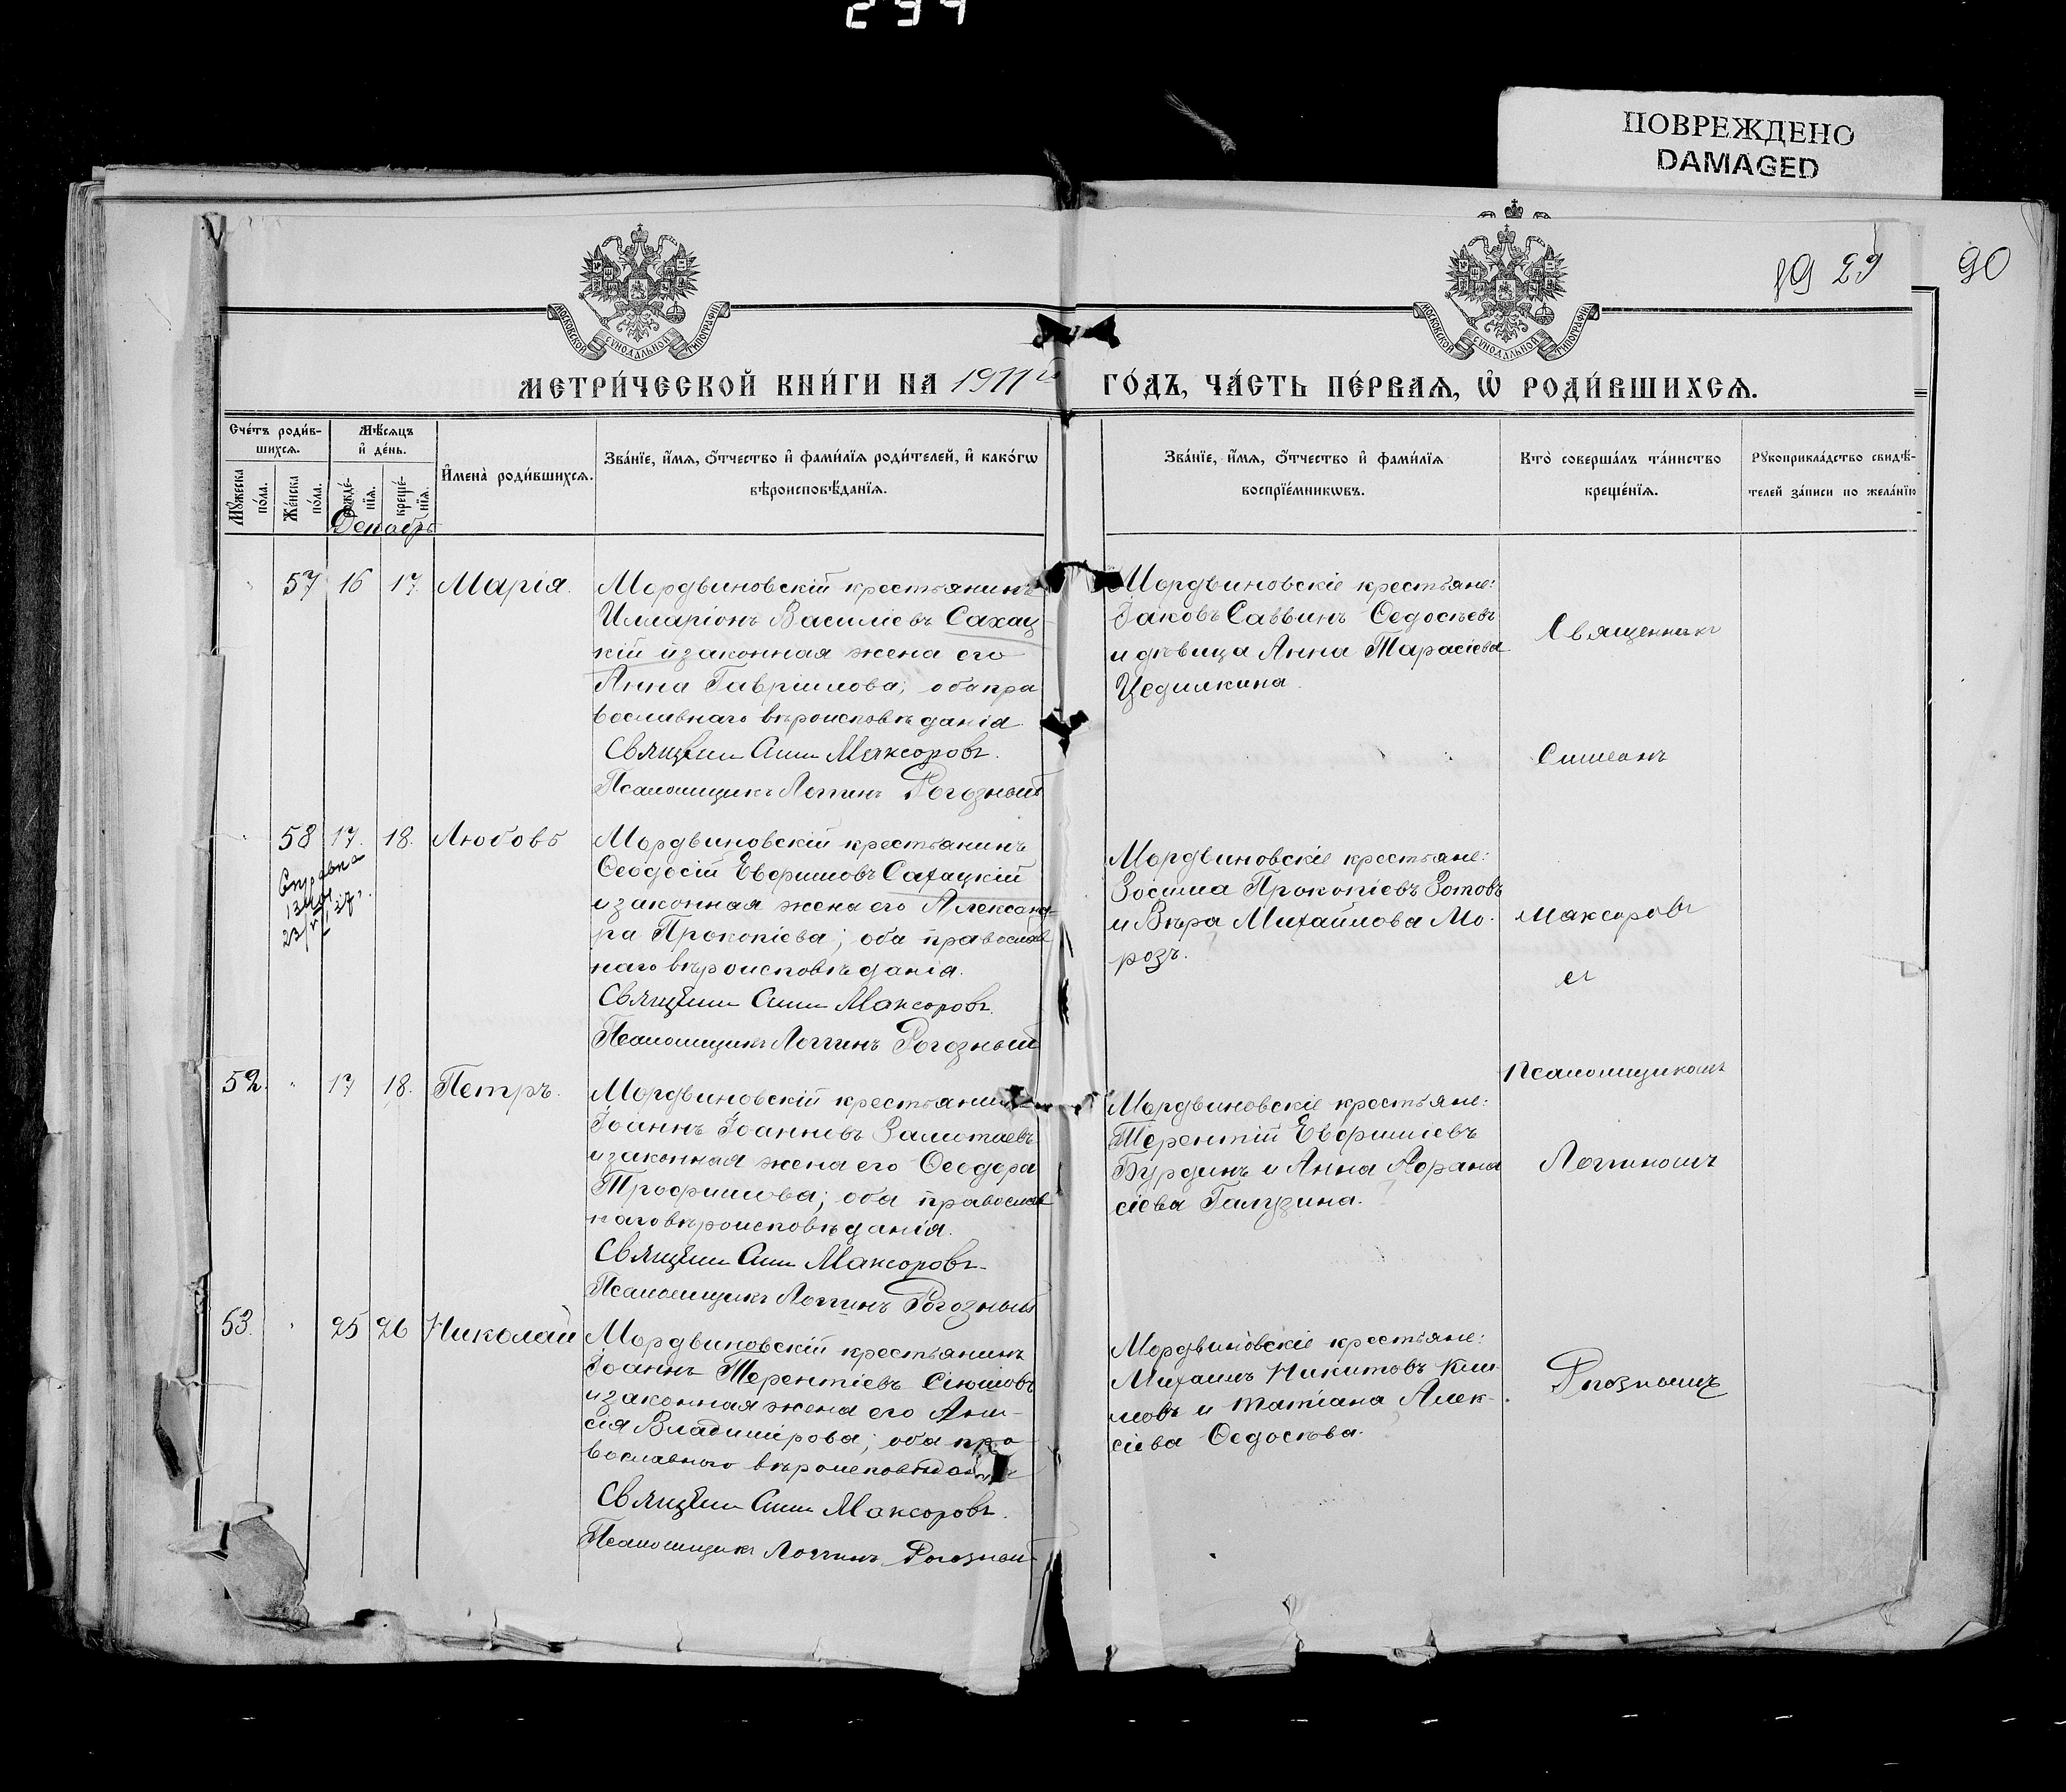 294
ПОВРЕЖДЕНО
DAMAGED
МОСКОВСКОЙ СѴНОДАЛЬНОЙ ТИПОГРАФІИ
МОСКОВСКОЙ СѴНОДАЛЬНОЙ ТИПОГРАФІИ
89 29
90
МЕТРИ́ЧЕСКОЙ КНИ́ГИ НА 1911й ГО́ДЪ, ЧА́СТЬ ПЕ́РВАѦ, Ѽ РОДИ́ВШИХСѦ.
Сче́тъ роди́в-
шихсѧ.
Мꙋ́жеска по́ла.
Же́нска по́ла.
Мѣ́сѧцъ
и҆ де́нь.
рожде́-
нїѧ.
креще́-
нїѧ.
И҆мена̀ роди́вшихсѧ.
Зва́нїе, и҆́мѧ, ѻ҆́тчество и҆ фами́лїѧ роди́телей, и҆ како́гѡ
вѣроисповѣ́данїѧ.
Зва́нїе, и҆́мѧ, ѻ҆́тчество и҆ фами́лїѧ
воспрїе́мникѡвъ.
Кто̀ соверша́лъ та́инство
креще́нїѧ.
Рꙋкоприкла́дство свидѣ́-
телей за́писи по жела́нїю
Декабрь
57 16 17. Марія.
Мордвиновскій крестьянинъ
Илларіонъ Василіевъ Сахац-
кій и законная жена его
Анна Гавріилова; оба пра
вославнаго вѣроисповѣданія.
Священн Сим Максоровъ.
Псаломщикъ Логгинъ Рогозный
Мордвиновскіе крестьяне:
Іаковъ Саввинъ Ѳедосѣевъ
и дѣвица Анна Тарасіева
Цедилкина.
Священникъ
Симеонъ
58 17. 18. Любовь
Справка
23/VI 27 г.
Мордвиновскій крестьянинъ
Ѳеодосій Евфимовъ Сахацкій
и законная жена его Александ
ра Прокопіева; оба православ
наго вѣроисповѣданія.
Священн Сим Максоровъ.
Псаломщикъ Логгинъ Рогозный
Мордвиновскіе крестьяне:
Зосима Прокопіевъ Зотовъ
и Вѣра Михайлова Мо-
розъ.
Максоровъ
съ
Псаломщикомъ
52. " 17 18. Петръ.
Мордвиновскій крестьянинъ
Іоаннъ Іоанновъ Замотаевъ
и законная жена его Ѳеодора
Трофимова; оба православ
наго вѣроисповѣданія.
Священн Сим Максоровъ.
Псаломщикъ Логгинъ Рогозный
Мордвиновскіе крестьяне:
Терентій Евфиміевъ
Бурдинъ и Анна Аѳана
сіева Галузина.
Логгиномъ
53. " 25 26 Николай
Мордвиновскій крестьянинъ
Іоаннъ Терентіевъ
и законная жена его Ани-
сія Владимірова; оба пра
вославнаго вѣроисповѣданія
Священн Сим Максоровъ.
Псаломщикъ Логгинъ Рогозный
Мордвиновскіе крестьяне:
Михаилъ Никитовъ Кли-
мовъ и Татіана Алек-
сіева Ѳедосѣева.
Рогознымъ